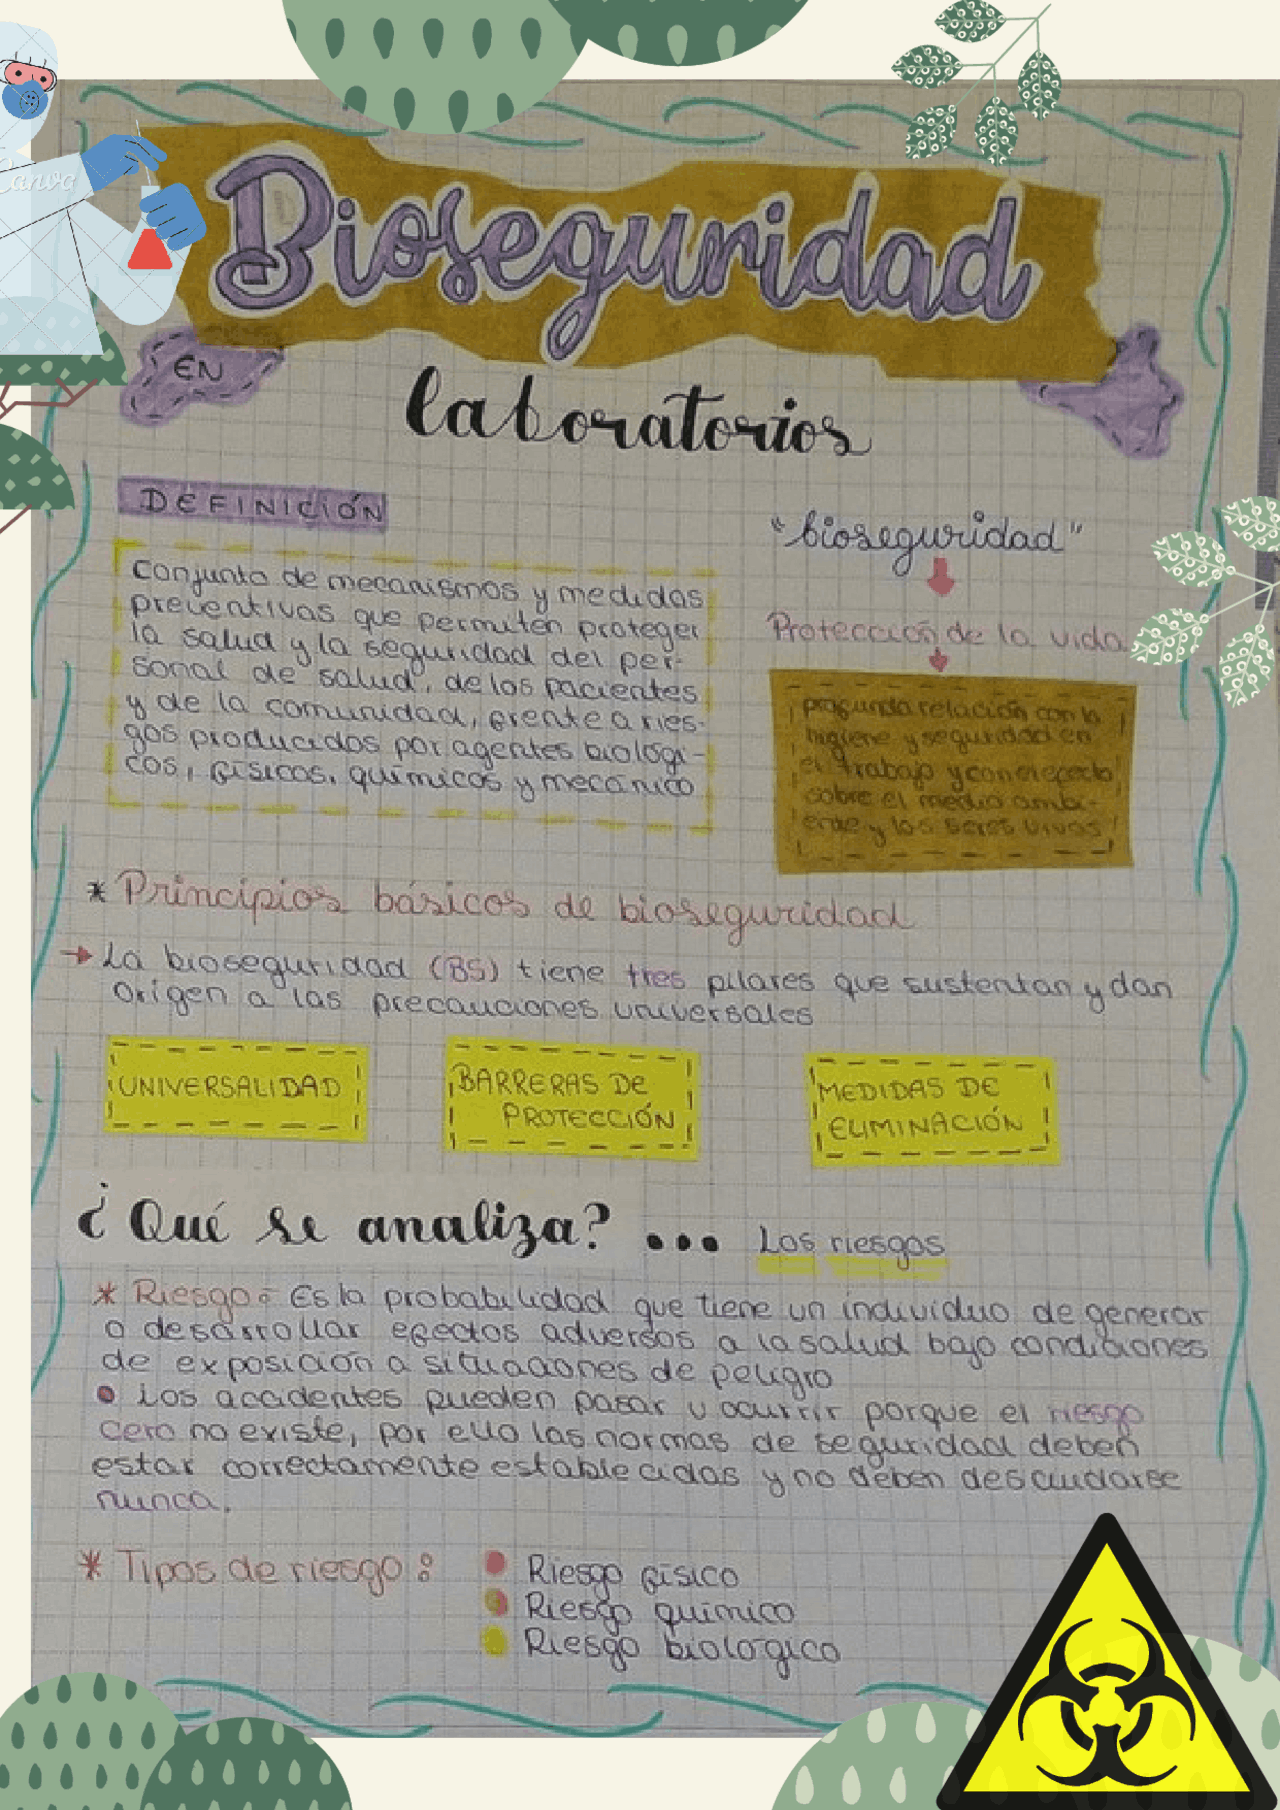 Canva
Bioseguridad
EN
laboratorios
DEFINICIÓN
Conjunto de mecanismos y medidas
preventivas que permiten proteger
la salud y la seguridad del per-
sonal de salud, de los pacientes
y de la comunidad, frente a ries-
gos producidos por agentes biologi-
cos, físicos, químicos y mecánico
"bioseguridad"
Protección de la vida
profunda relación con la
higiene y seguridad en
el trabajo y con el efecto
sobre el medio ambi-
ente y los seres vivos
* Principios básicos de bioseguridad
→ La bioseguridad (BS) tiene tres pilares que sustentan y dan
origen a las precauciones universales
UNIVERSALIDAD
BARRERAS DE
PROTECCIÓN
MEDIDAS DE
ELIMINACIÓN
¿Qué se analiza? ... Los riesgos
* Riesgo: Es la probabilidad que tiene un individuo de generar
o desarrollar efectos adversos a la salud bajo condiciones
de exposición a situaciones de peligro
• Los accidentes pueden pasar u ocurrir porque el riesgo
cero no existe, por ello las normas de seguridad deben
estar correctamente establecidas y no deben descuidarse
nunca.
* Tipos de riesgo:
Riesgo físico
Riesgo químico
Riesgo biologico